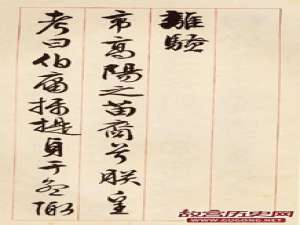 離騷
帝高陽之苗裔兮朕皇
考曰伯庸攝提貞于孟陬
GUCN.COM